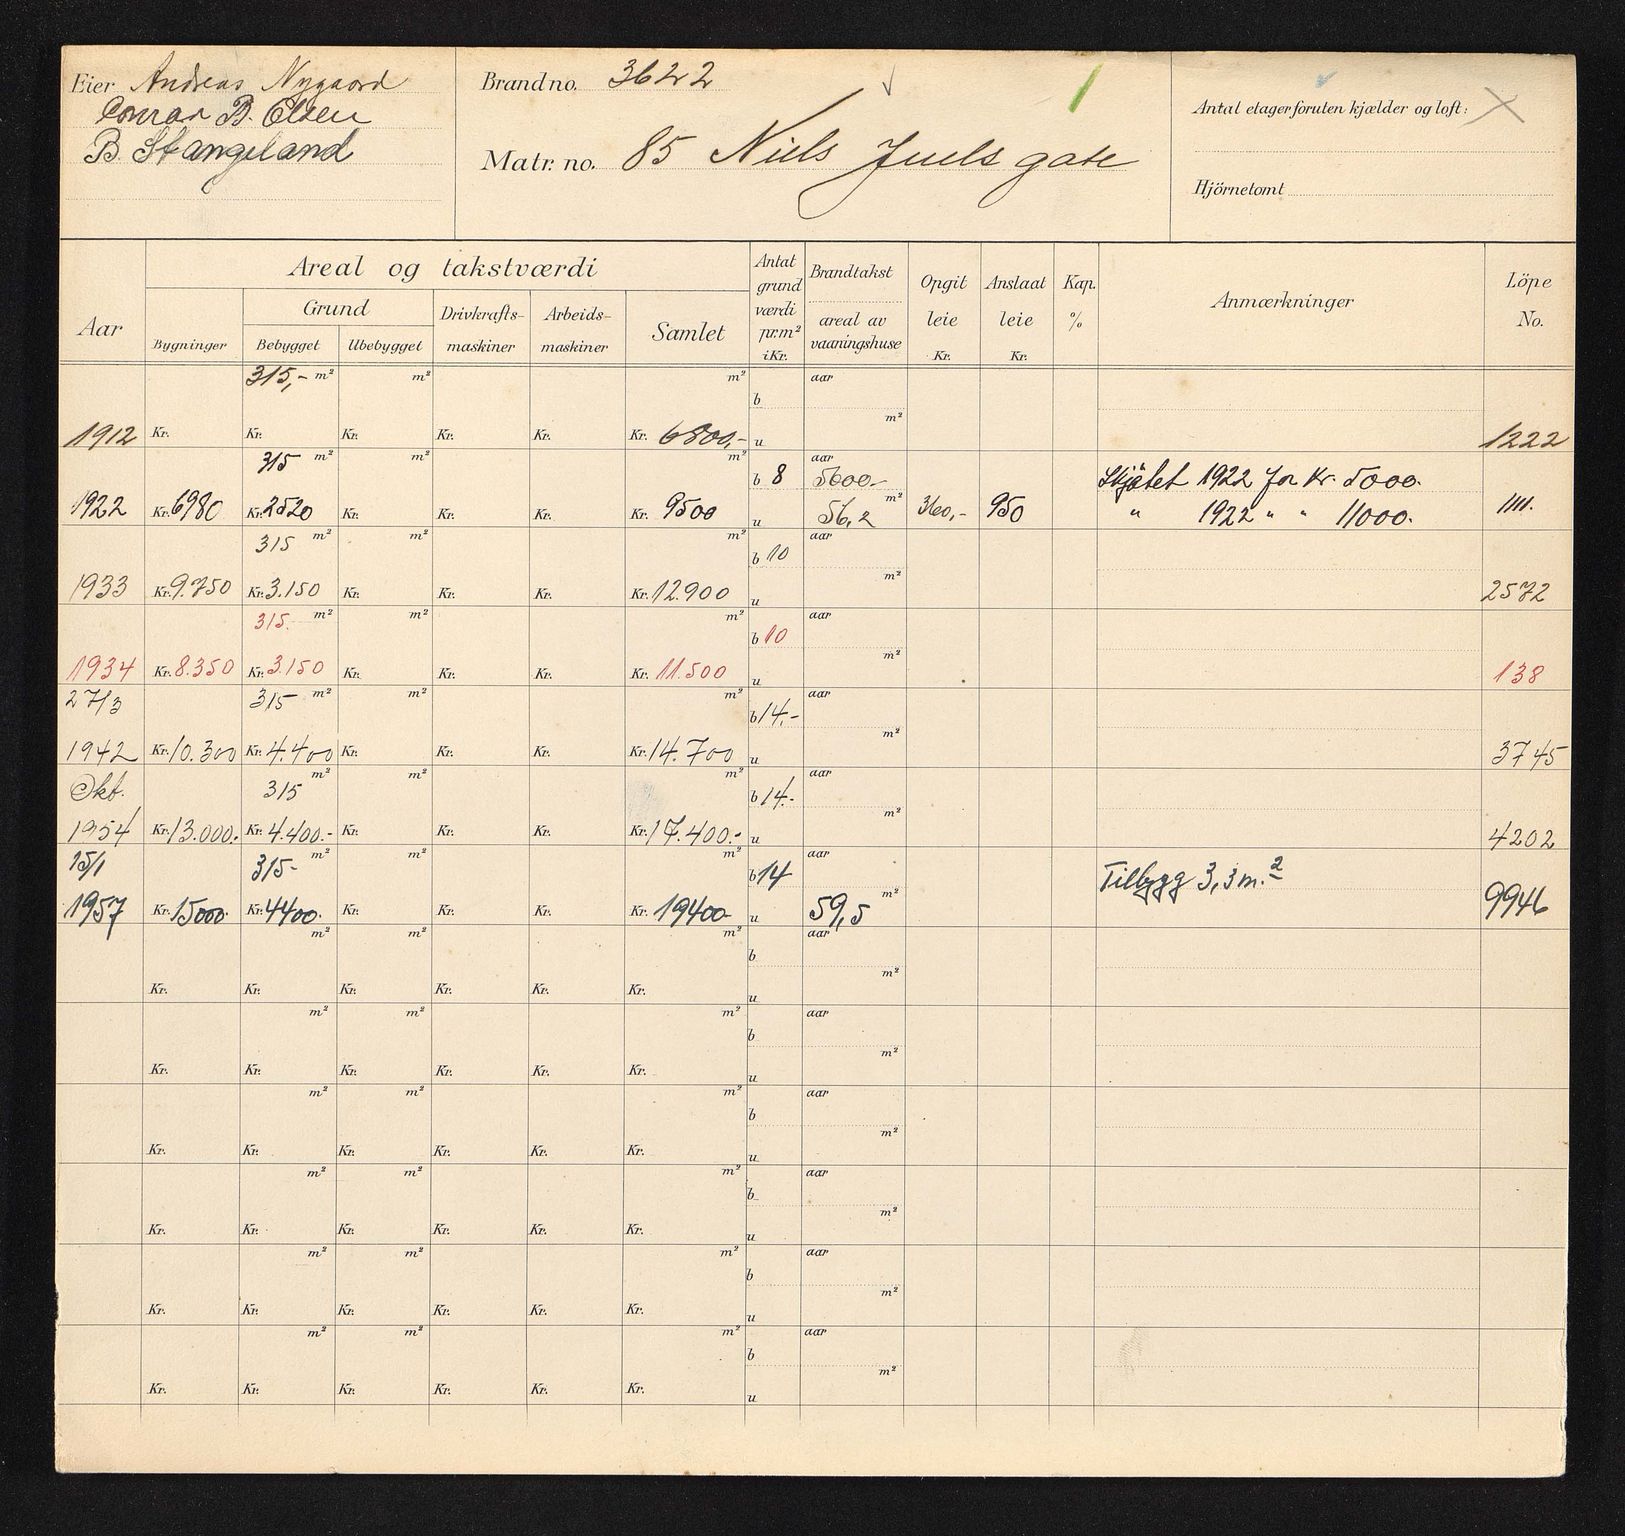 Eier Andreas Nygaard
Conrad B. Olsen
B. Stangeland
Brandno. 3622
Matr. no. 85 Niels Juels gate
Antal etager foruten kjælder og loft:
Hjörnetomt
Aar
Areal og takstværdi
Bygninger
Grund
Bebygget
Ubebygget
Drivkrafts-
maskiner
Arbeids-
maskiner
Samlet
Antat
grund
værdi
pr.m²
i Kr.
Brandtakst
areal av
vaaningshuse
Opgit
leie
Kr.
Anslaat
leie
Kr.
Kap.
%
Anmærkninger
Löpe
No.
315,- m² m² m² b aar m²
1912 Kr. Kr. Kr. Kr. Kr. Kr. 6800,- u 1222
315 m² m² m² b 8 aar 5600.- m² Skjötet 1922 for Kr. 5000.
1922 Kr. 6980 Kr. 2520 Kr. Kr. Kr. Kr. 9500 u 56,2 360,- 950 " 1922 " " 11000. 1111.
315 m² m² m² b 10 aar m²
1933 Kr. 9.750 Kr. 3.150 Kr. Kr. Kr. Kr. 12.900 u 2572
315. m² m² m² b 10 aar m²
1934 Kr. 8.350 Kr. 3.150 Kr. Kr. Kr. Kr. 11.500 u 138
27/3 315 m² m² m² b 14.- aar m²
1942 Kr. 10.300 Kr. 4.400 Kr. Kr. Kr. Kr. 14.700 u 3745
Okt. 315 m² m² m² b 14.- aar m²
1954 Kr. 13.000.- Kr. 4.400.- Kr. Kr. Kr. Kr. 17.400.- u 4202
15/1 315- m² m² m² b 14 aar m² Tilbygg 3,3 m.²
1957 Kr. 15000. Kr. 4400. Kr. Kr. Kr. Kr. 19400- u 59,5 9946
m² m² m² b aar m²
Kr. Kr. Kr. Kr. Kr. Kr. u
m² m² m² b aar m²
Kr. Kr. Kr. Kr. Kr. Kr. u
m² m² m² b aar m²
Kr. Kr. Kr. Kr. Kr. Kr. u
m² m² m² b aar m²
Kr. Kr. Kr. Kr. Kr. Kr. u
m² m² m² b aar m²
Kr. Kr. Kr. Kr. Kr. Kr. u
m² m² m² b aar m²
Kr. Kr. Kr. Kr. Kr. Kr. u